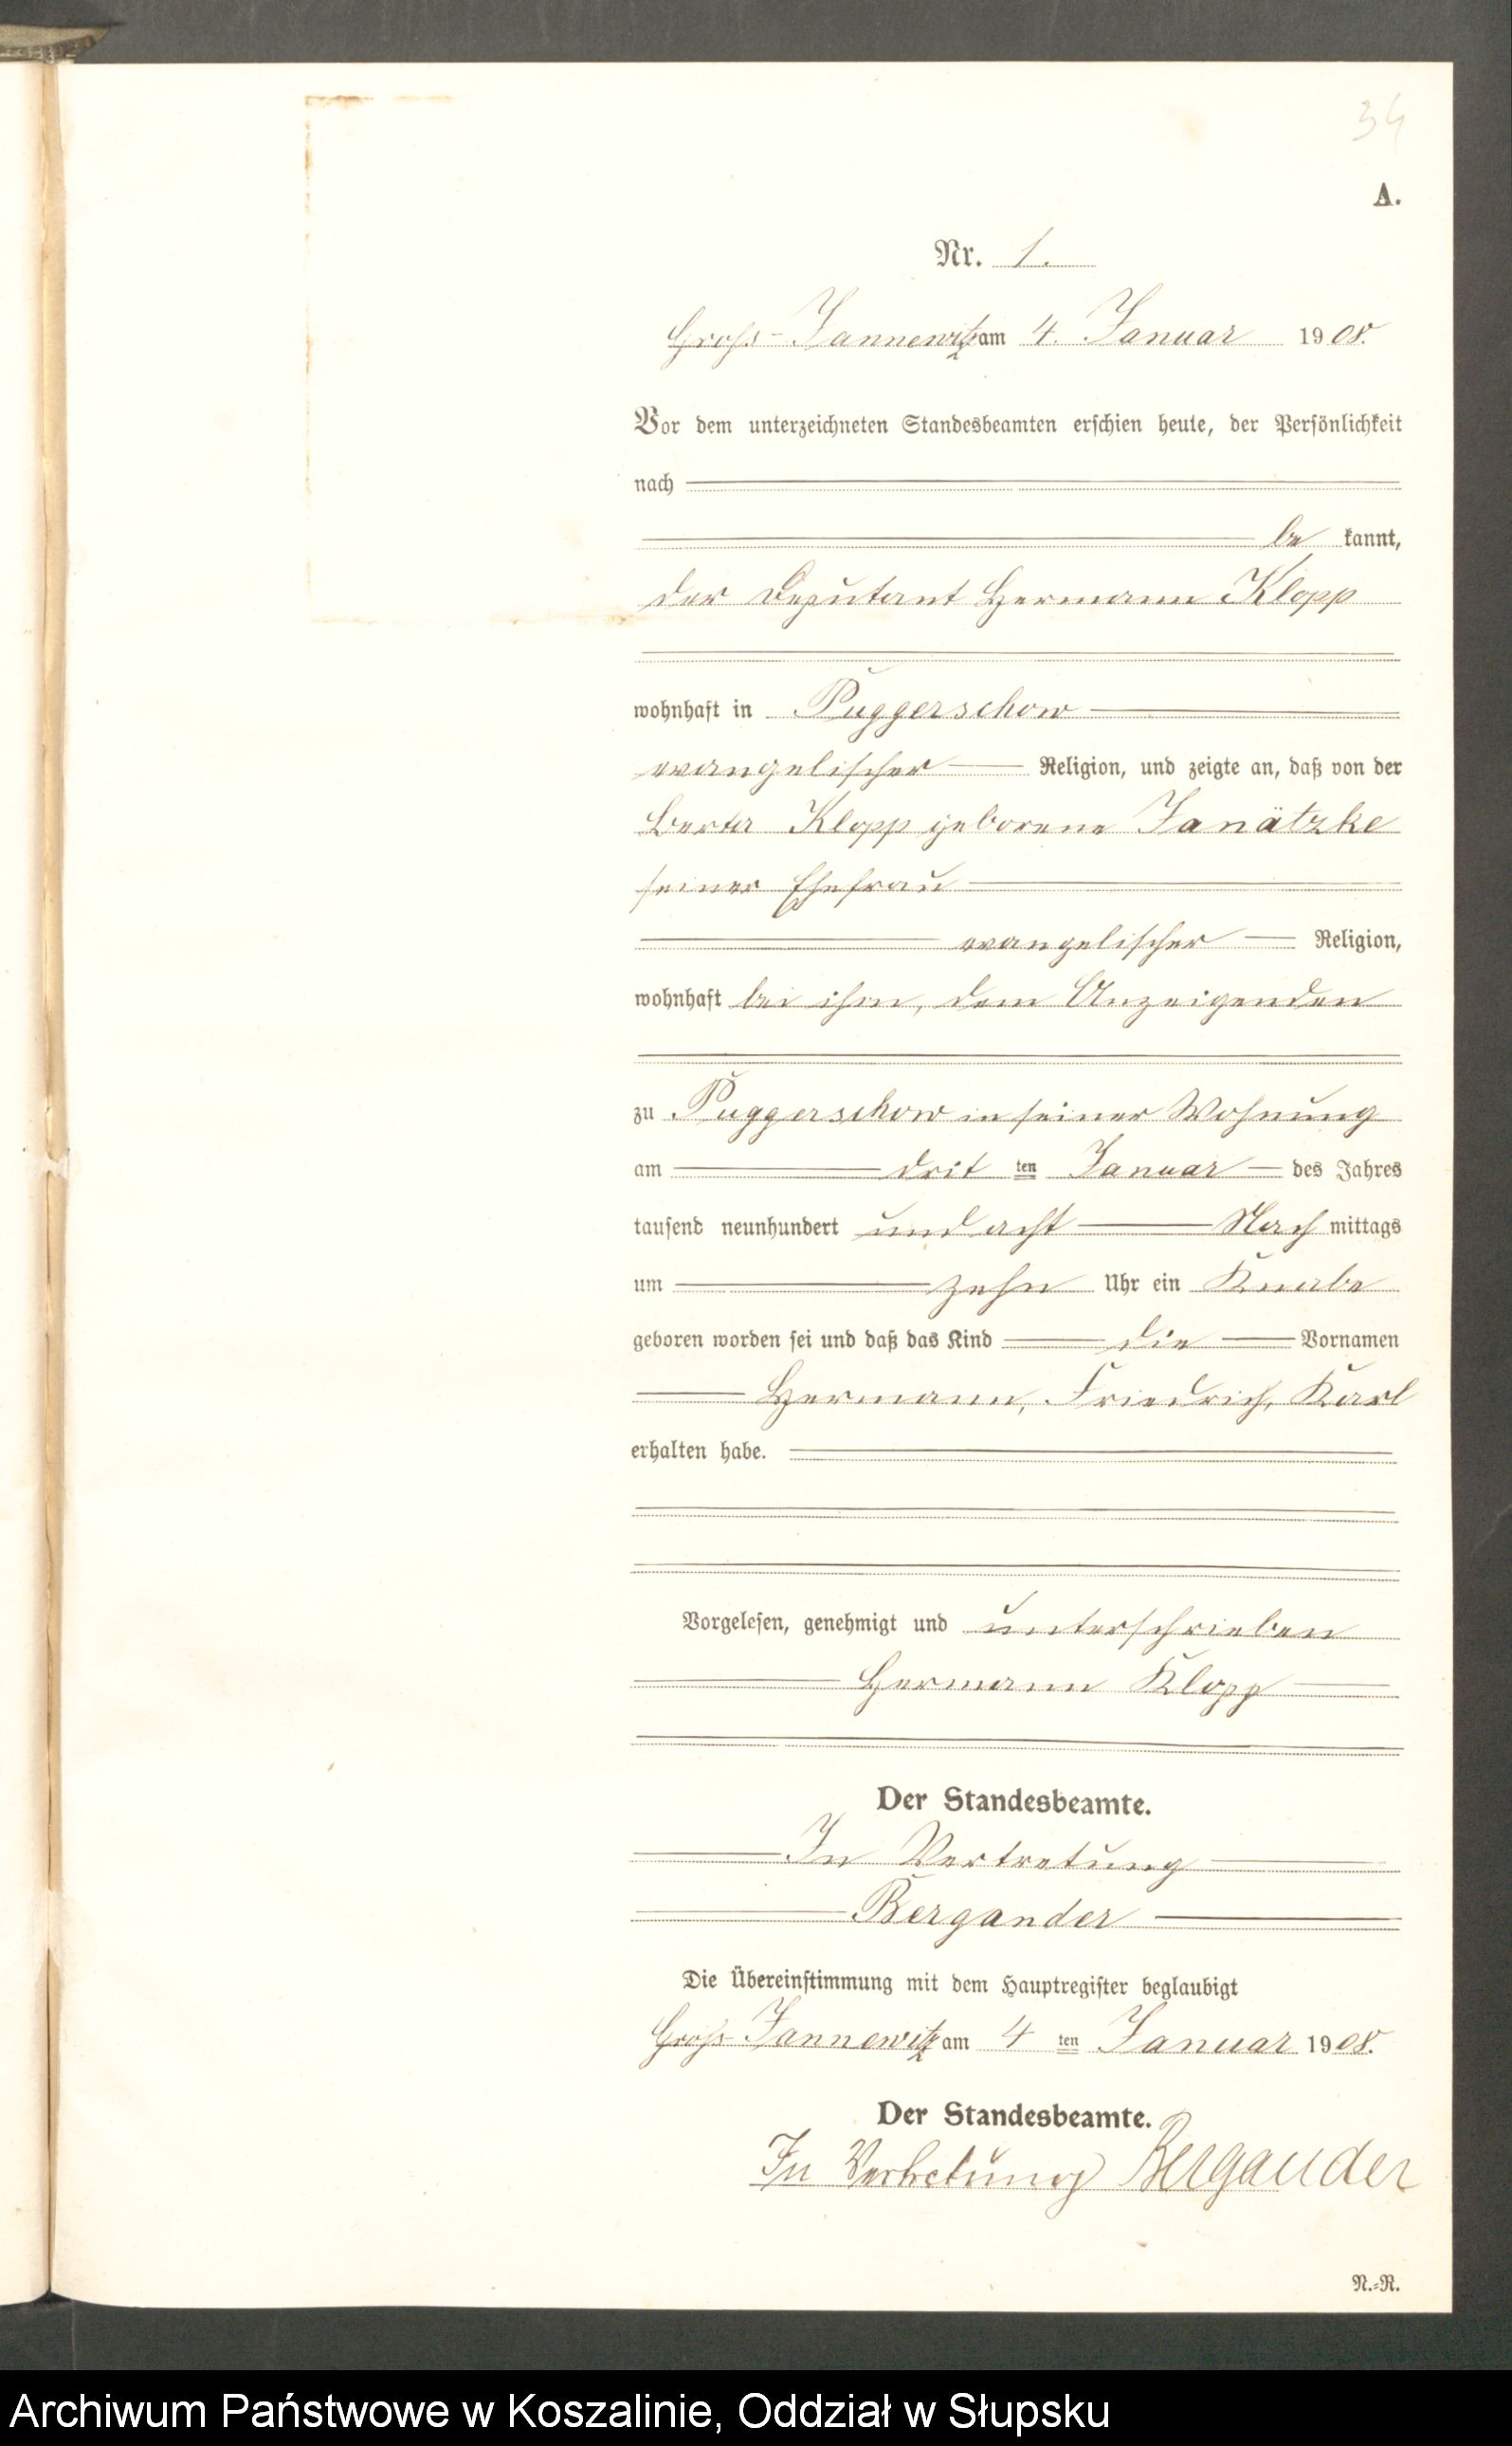 34
A.
Nr. 1.
Gross-Jannewitz am 4. Januar 1908.
Vor dem unterzeichneten Standesbeamten erschien heute, der Persönlichkeit
nach
be kannt,
der Deputant Hermann Klopp
wohnhaft in Puggerschow
evangelischer Religion, und zeigte an, daß von der
Berta Klopp geborene Janätzke
seiner Ehefrau
evangelischer Religion,
wohnhaft bei ihm, dem Anzeigenden
zu Puggerschow in seiner Wohnung
am drit ten Januar des Jahres
tausend neunhundert und acht Nach mittags
um zehn Uhr ein Knabe
geboren worden sei und daß das Kind die Vornamen
Hermann, Friedrich, Karl
erhalten habe.
Vorgelesen, genehmigt und unterschrieben
Hermann Klopp
Der Standesbeamte.
In Vertretung
Bergander
Die Übereinstimmung mit dem Hauptregister beglaubigt
Gross-Jannewitz am 4 ten Januar 1908.
Der Standesbeamte.
In Vertretung Bergander
N.-R.
Archiwum Państwowe w Koszalinie, Oddział w Słupsku